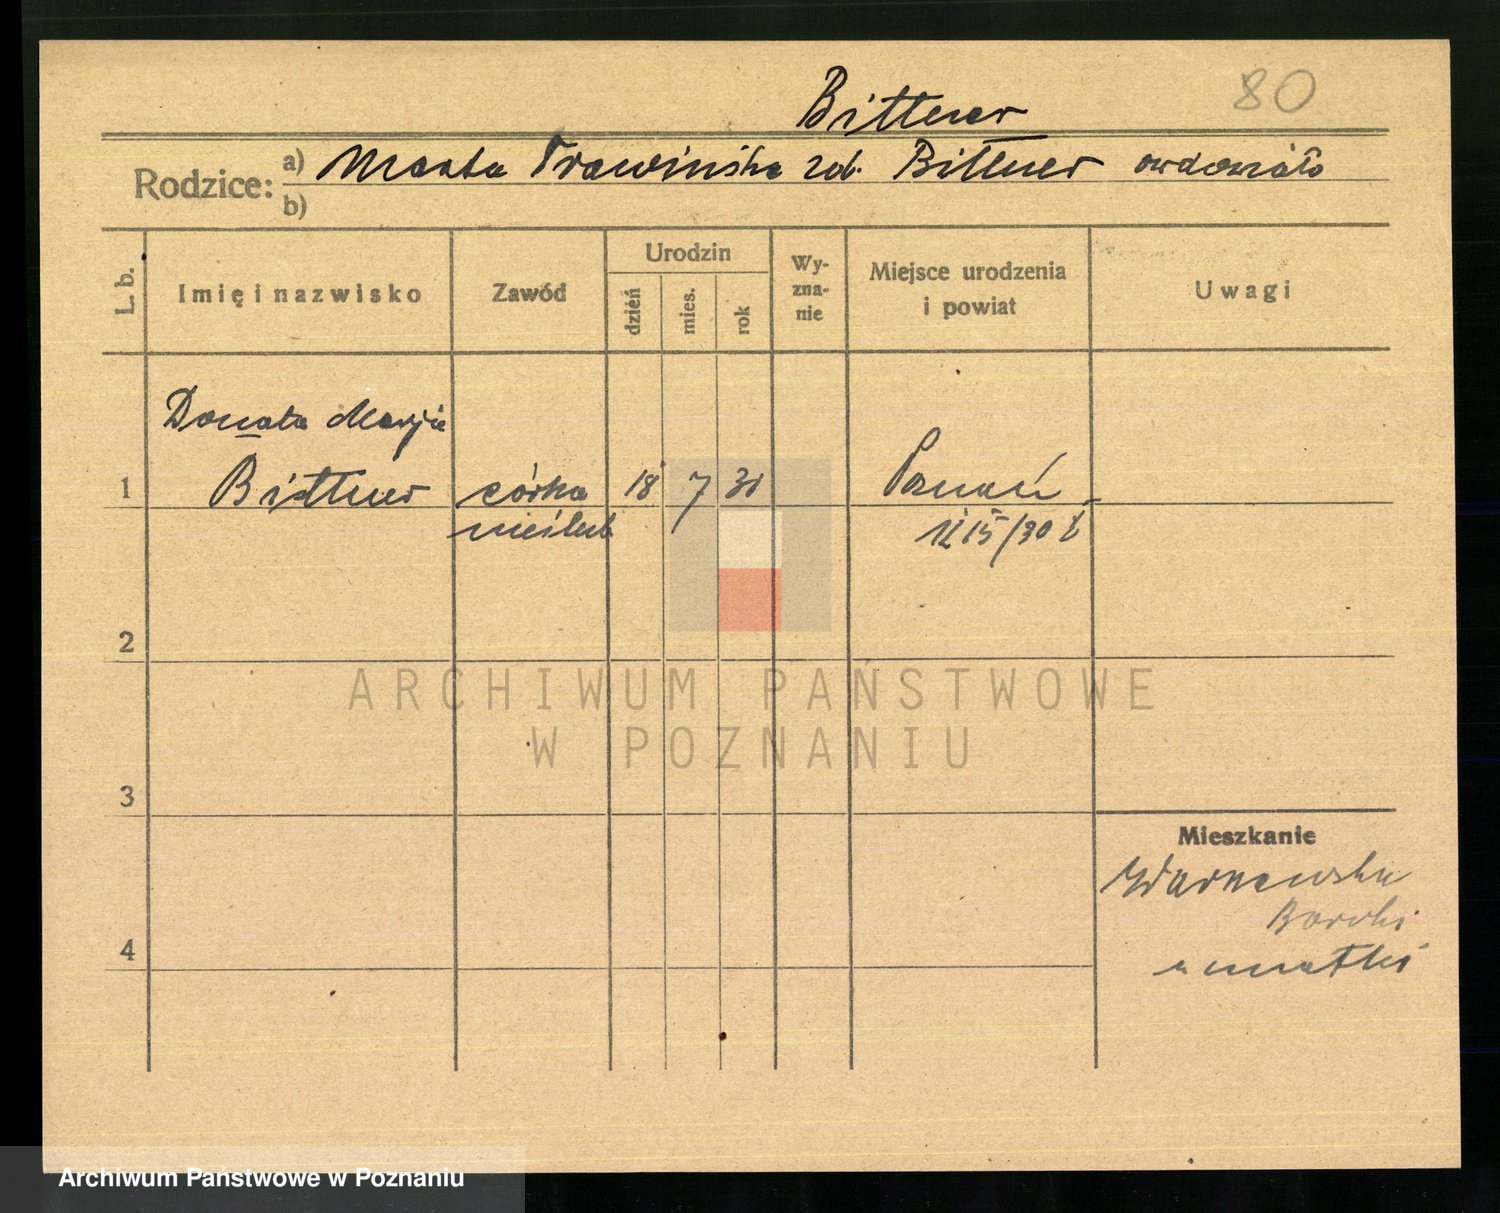 80
Bittner
Rodzice: a) Marta Trawińska rod. Bittner owdowiała
b)
L. b. Imię i nazwisko Zawód Urodzin dzień mies. rok Wy-zna-nie Miejsce urodzenia i powiat Uwagi
Donata Marja
1 Bittner córka 18 7 30 Poznań
nieślub. 1215/30
2
ARCHIWUM PAŃSTWOWE
W POZNANIU
3
Mieszkanie
4
u matki
Archiwum Państwowe w Poznaniu